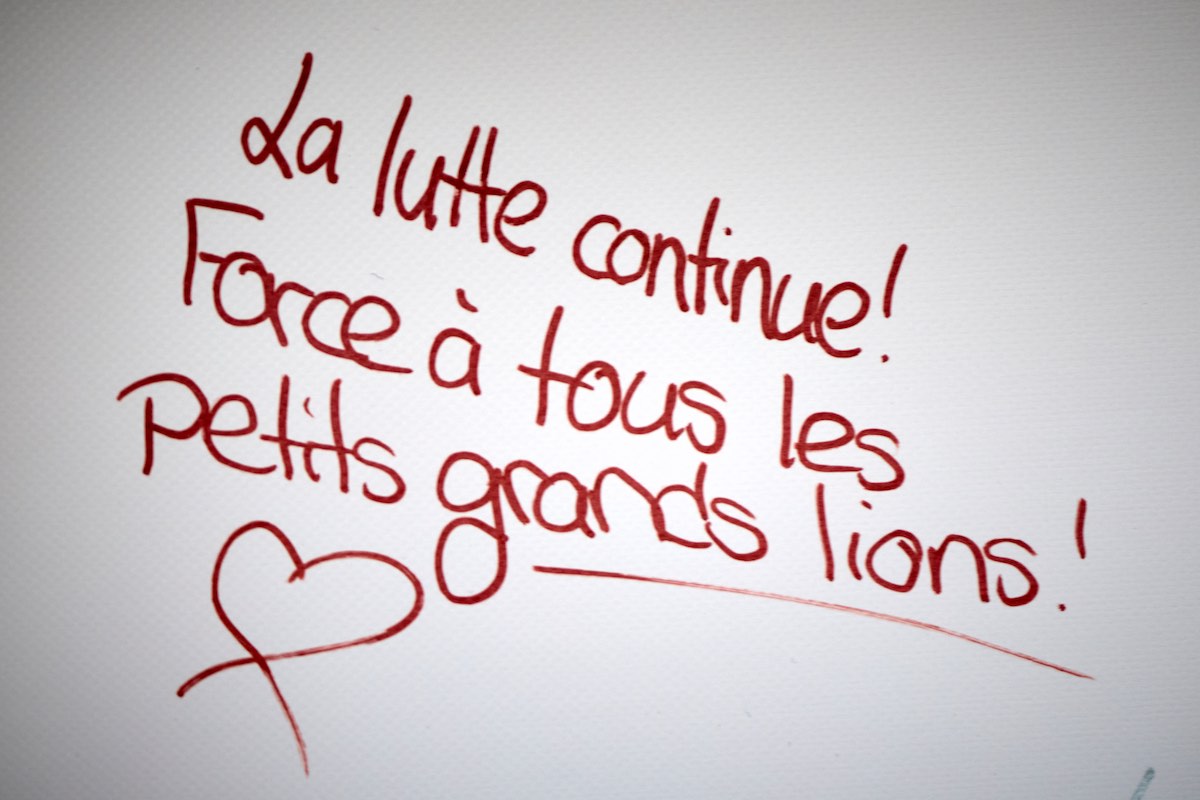 La lutte continue!
Force à tous les
Petits grands lions!